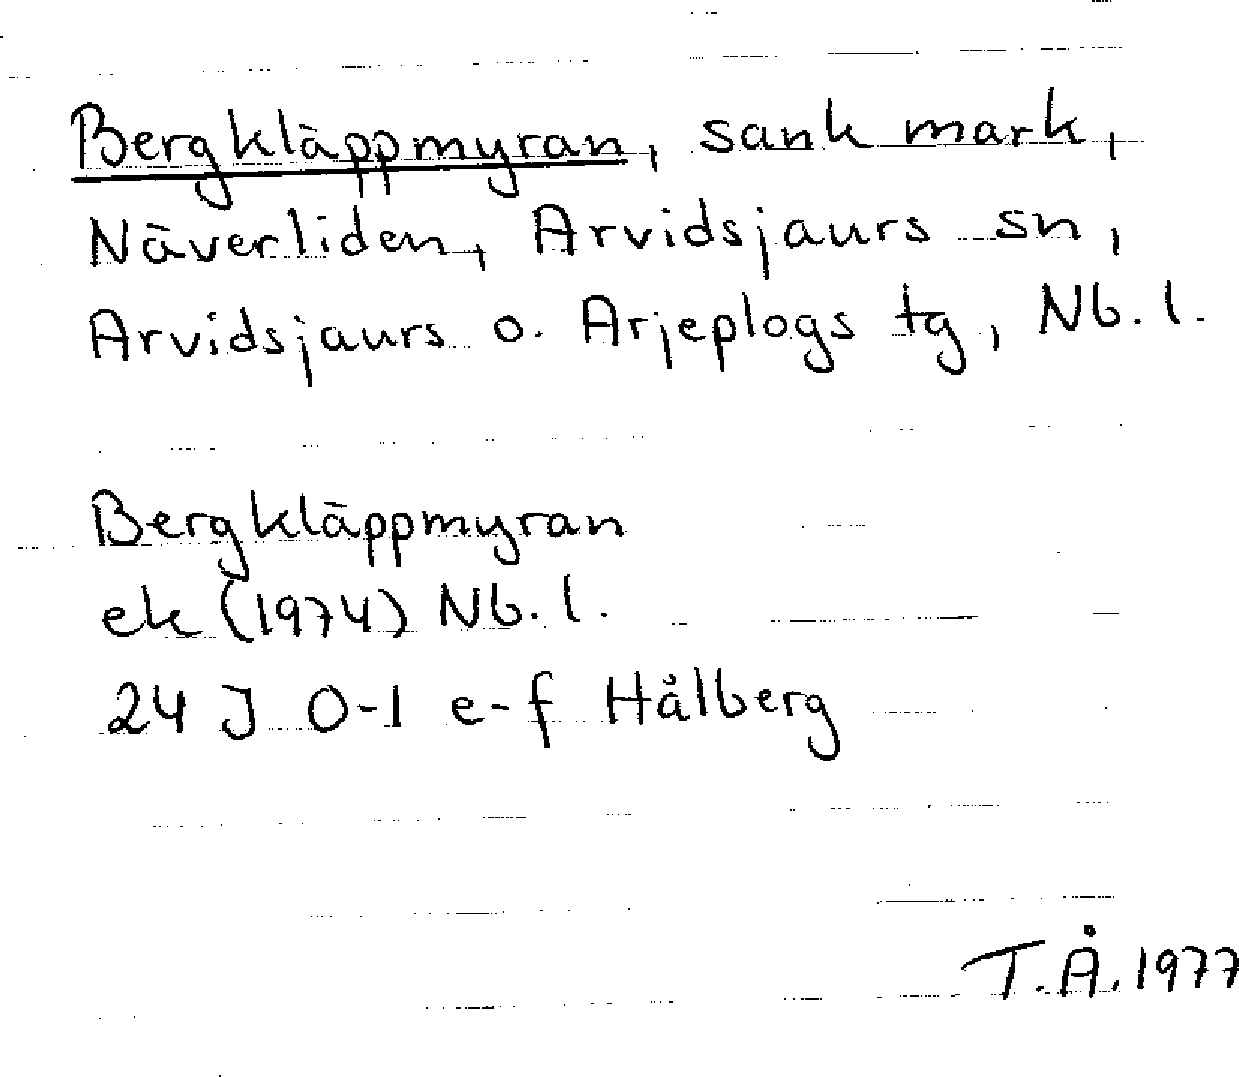 Bergkläppmyran, sank mark,
Näverliden, Arvidsjaurs sn,
Arvidsjaurs o. Arjeplogs tg, Nb. l.
Bergkläppmyran
ek (1974) Nb. l.
24 J 0-1 e-f Hålberg
T.Å. 1977